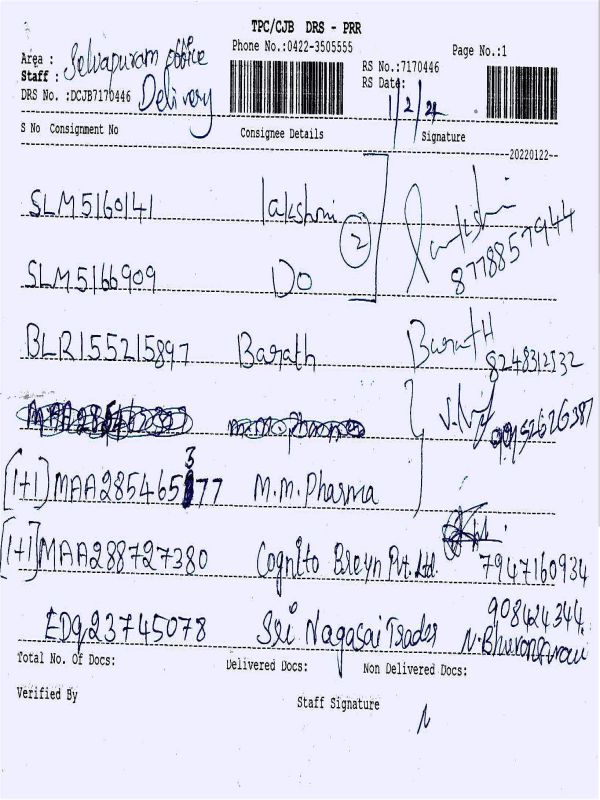 TPC/CJB DRS - PRR
Phone No.:0422-3505555
Page No.:1
Area : Selvapuram office
Staff : Delivery
RS No.:7170446
DRS No. :DCJB7170446
RS Date: 1/2/24
S No Consignment No Consignee Details Signature
20220122
SLM5160141 lakshmi 2
8778857944
SLM5166909 Do
BLR155215897 Barath Barath
8248312532
[1+1] MAA285465377 M.M.Pharma
[1+1] MAA288727380 Cognito Breyn Pvt.Ltd. 7947160934
908424344
EDQ23745078 Sri Nagasai Trades
Total No. Of Docs: Delivered Docs: Non Delivered Docs:
Verified By
Staff Signature